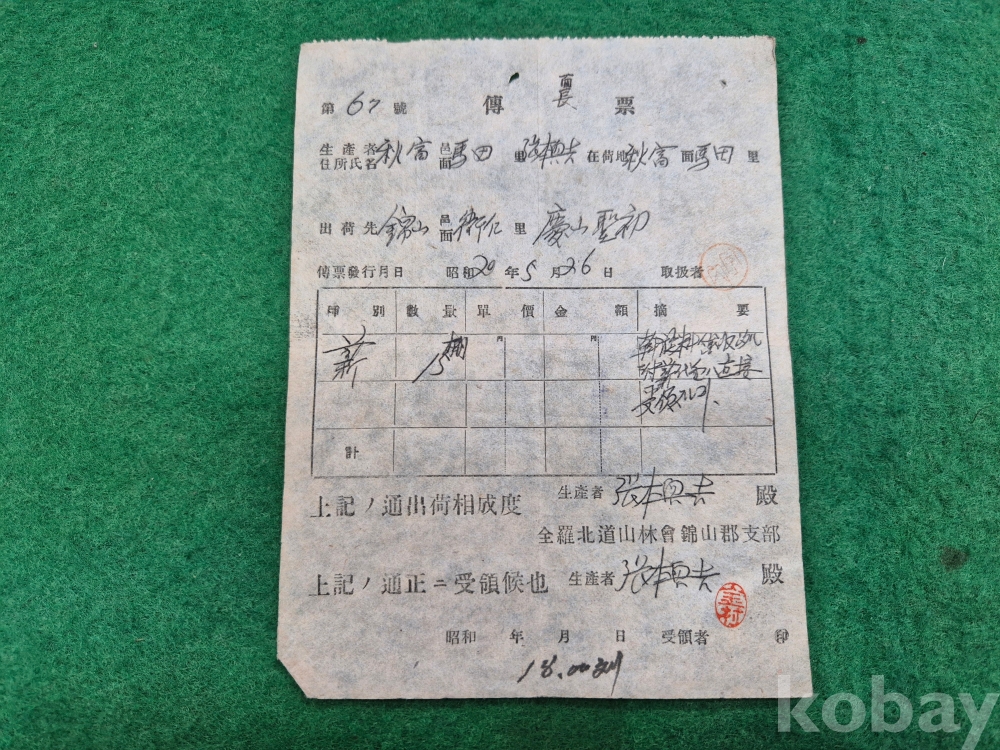 面長
第 67 號 傳票
生產者住所氏名 秋富 邑面 馬田 里 張本興吉 在荷地 秋富 面 馬田 里
出荷先 錦山 邑面 衛仁 里 慶山聖初
傳票發行月日 昭和 20 年 5 月 26 日 取扱者
種別 數量 單價 金額 摘要
薪 15棚 円 円
直接
受領
計
上記ノ通出荷相成度 生產者 張本興吉 殿
全羅北道山林會錦山郡支部
上記ノ通正ニ受領候也 生產者 張本興吉 殿
金村
昭和 年 月 日 受領者 ㊞
18.00
kobay